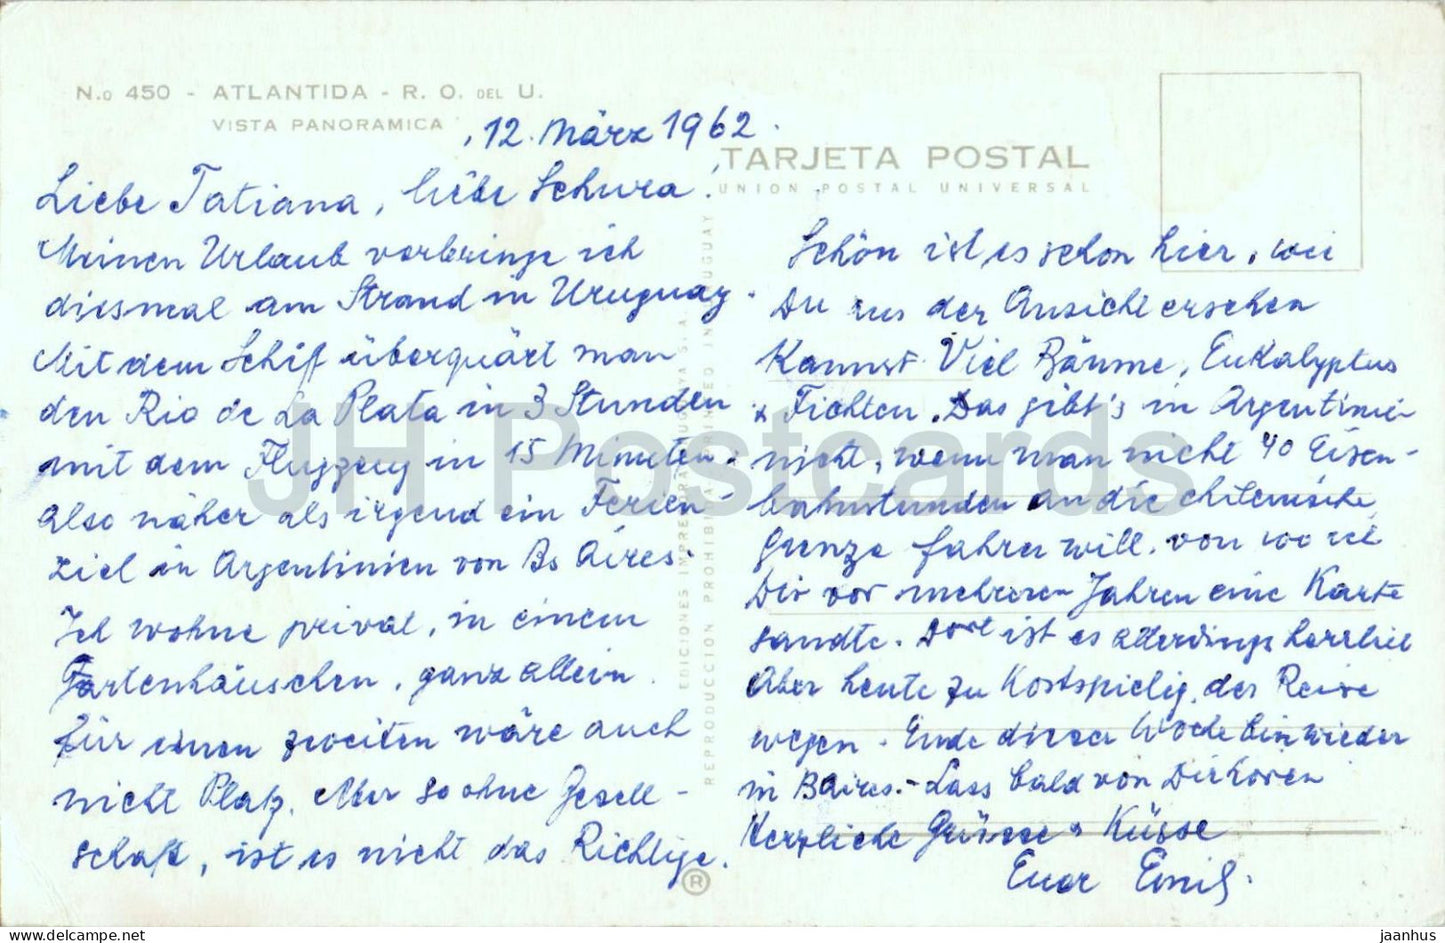 N.o 450 - ATLANTIDA - R. O. DEL U.
VISTA PANORAMICA
12. März 1962.
TARJETA POSTAL
UNION POSTAL UNIVERSAL
Liebe Tatiana, liebe Schura!
Meinen Urlaub verbringe ich
diesmal am Strand in Uruguay.
Mit dem Schiff überquert man
den Rio de La Plata in 3 Stunden
mit dem Flugzeug in 15 Minuten.
also näher als irgend ein Ferien-
ziel in Argentinien von Bs Aires.
Ich wohne privat, in einem
Gartenhäuschen, ganz allein.
für einen zweiten wäre auch
nicht Platz. Aber so ohne Gesell-
schaft, ist es nicht das Richtige.
Schön ist es schon hier, wie
Du aus der Ansicht ersehen
kannst. Viel Bäume, Eukalyptus
& Fichten. Das gibt's in Argentinien
nicht, wenn man nicht 40 Eisen-
bahnstunden an die chilenische
Grenze fahren will, von wo ich
Dir vor mehreren Jahren eine Karte
sandte. Dort ist es allerdings herrlich
Aber heute zu kostspielig, der Reise
wegen. Ende dieser Woche bin wieder
in BAires. - Lass bald von Dir hören
Herzliche Grüsse & Küsse
Euer Emil.
EDICIONES IMPRESORA URUGUAYA S. A.
REPRODUCCION PROHIBIDA PRINTED IN URUGUAY
®
JH Postcards
www.delcampe.net
jaanhus